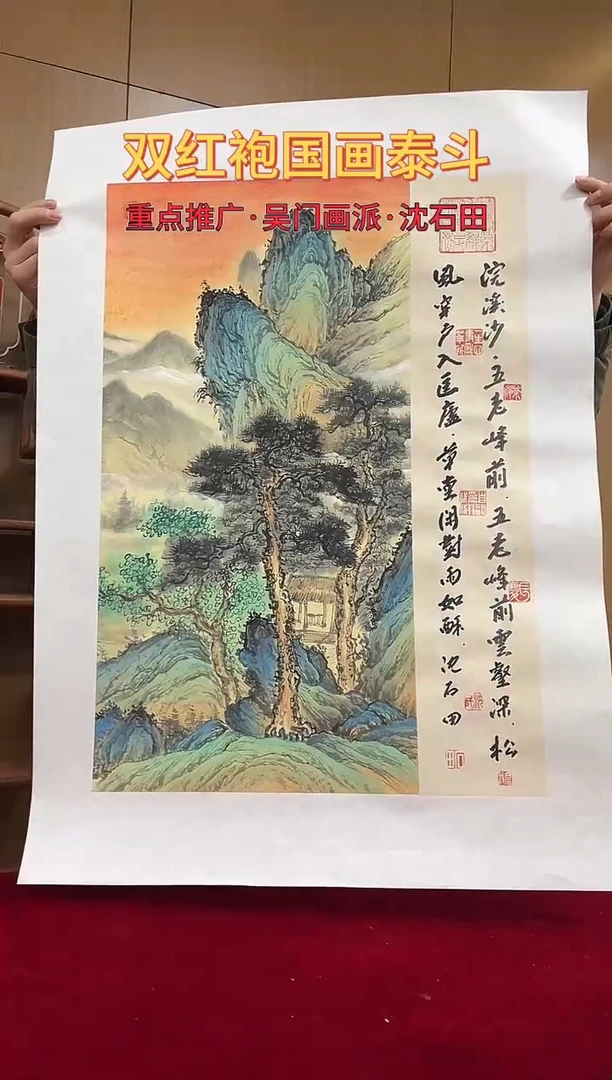 双红袍国画泰斗
重点推广·吴门画派·沈石田
浣溪沙·五老峰前·五老峰前雲壑深·松
風穿戸入匡廬·筆畫開對雨如酥·沈石田